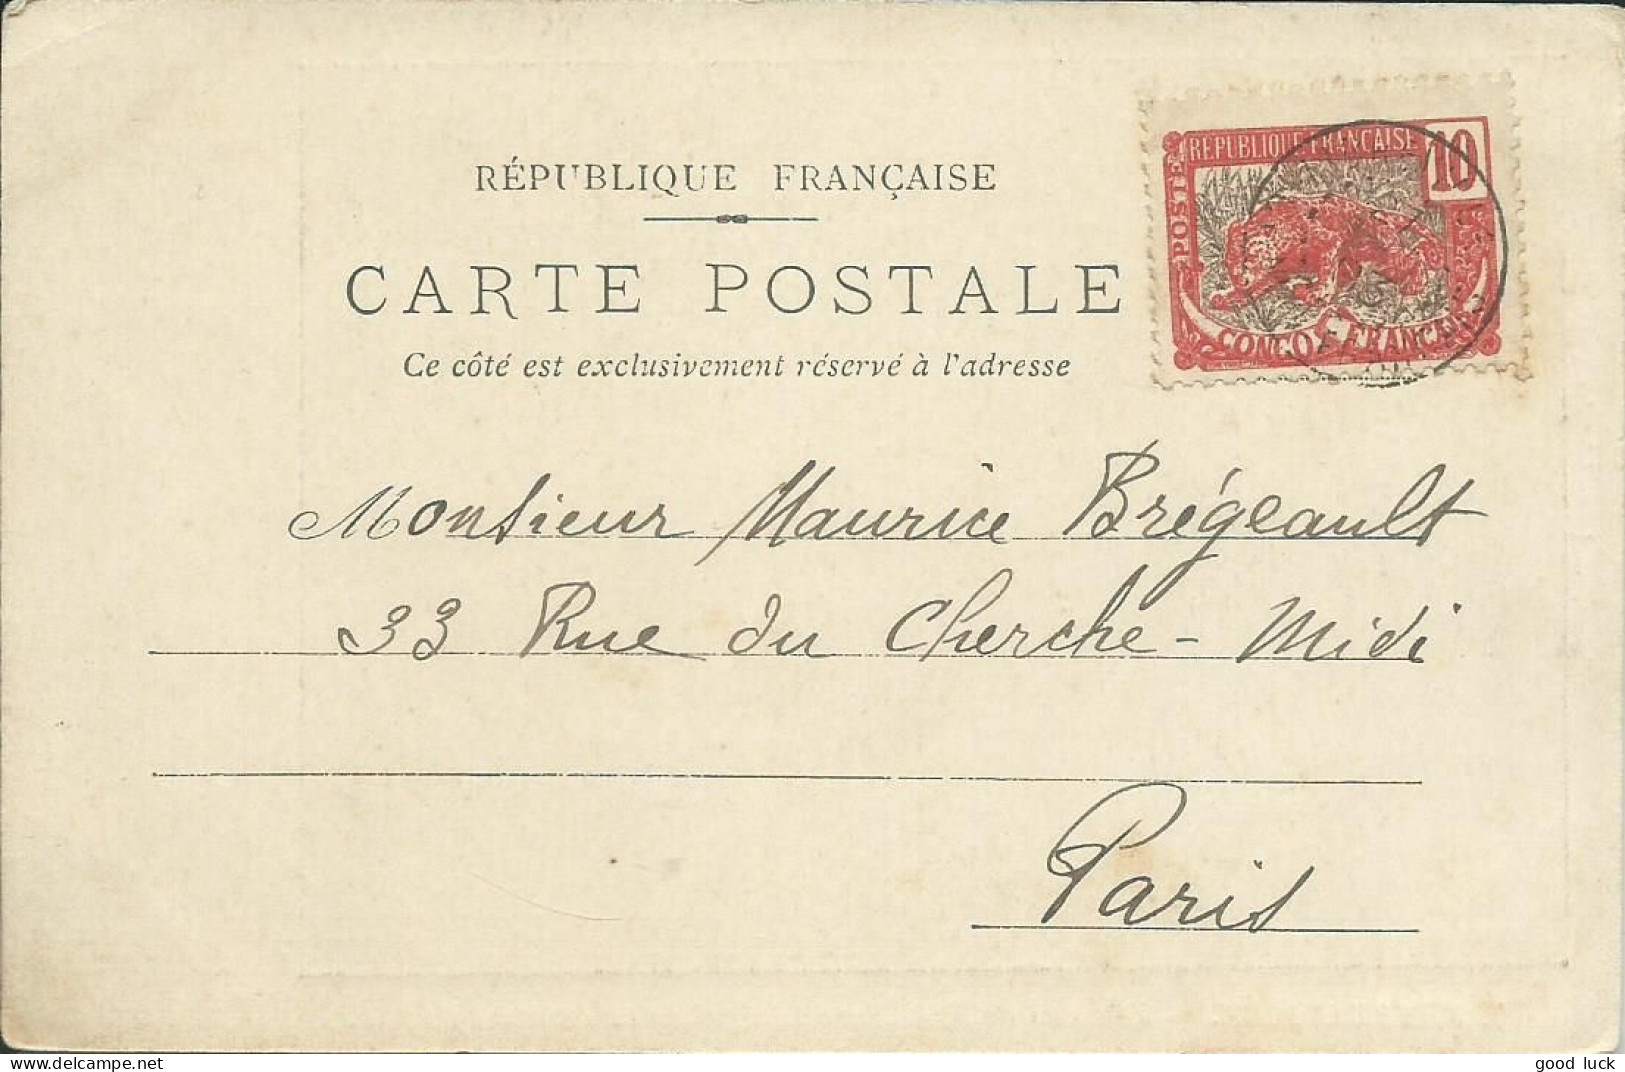 RÉPUBLIQUE FRANÇAISE
CARTE POSTALE
Ce côté est exclusivement réservé à l'adresse
RÉPUBLIQUE FRANÇAISE
10
POSTES
CONGO FRANÇAIS
Monsieur Maurice Brégeault
33 Rue du Cherche-Midi
Paris
good luck
www.delcampe.net